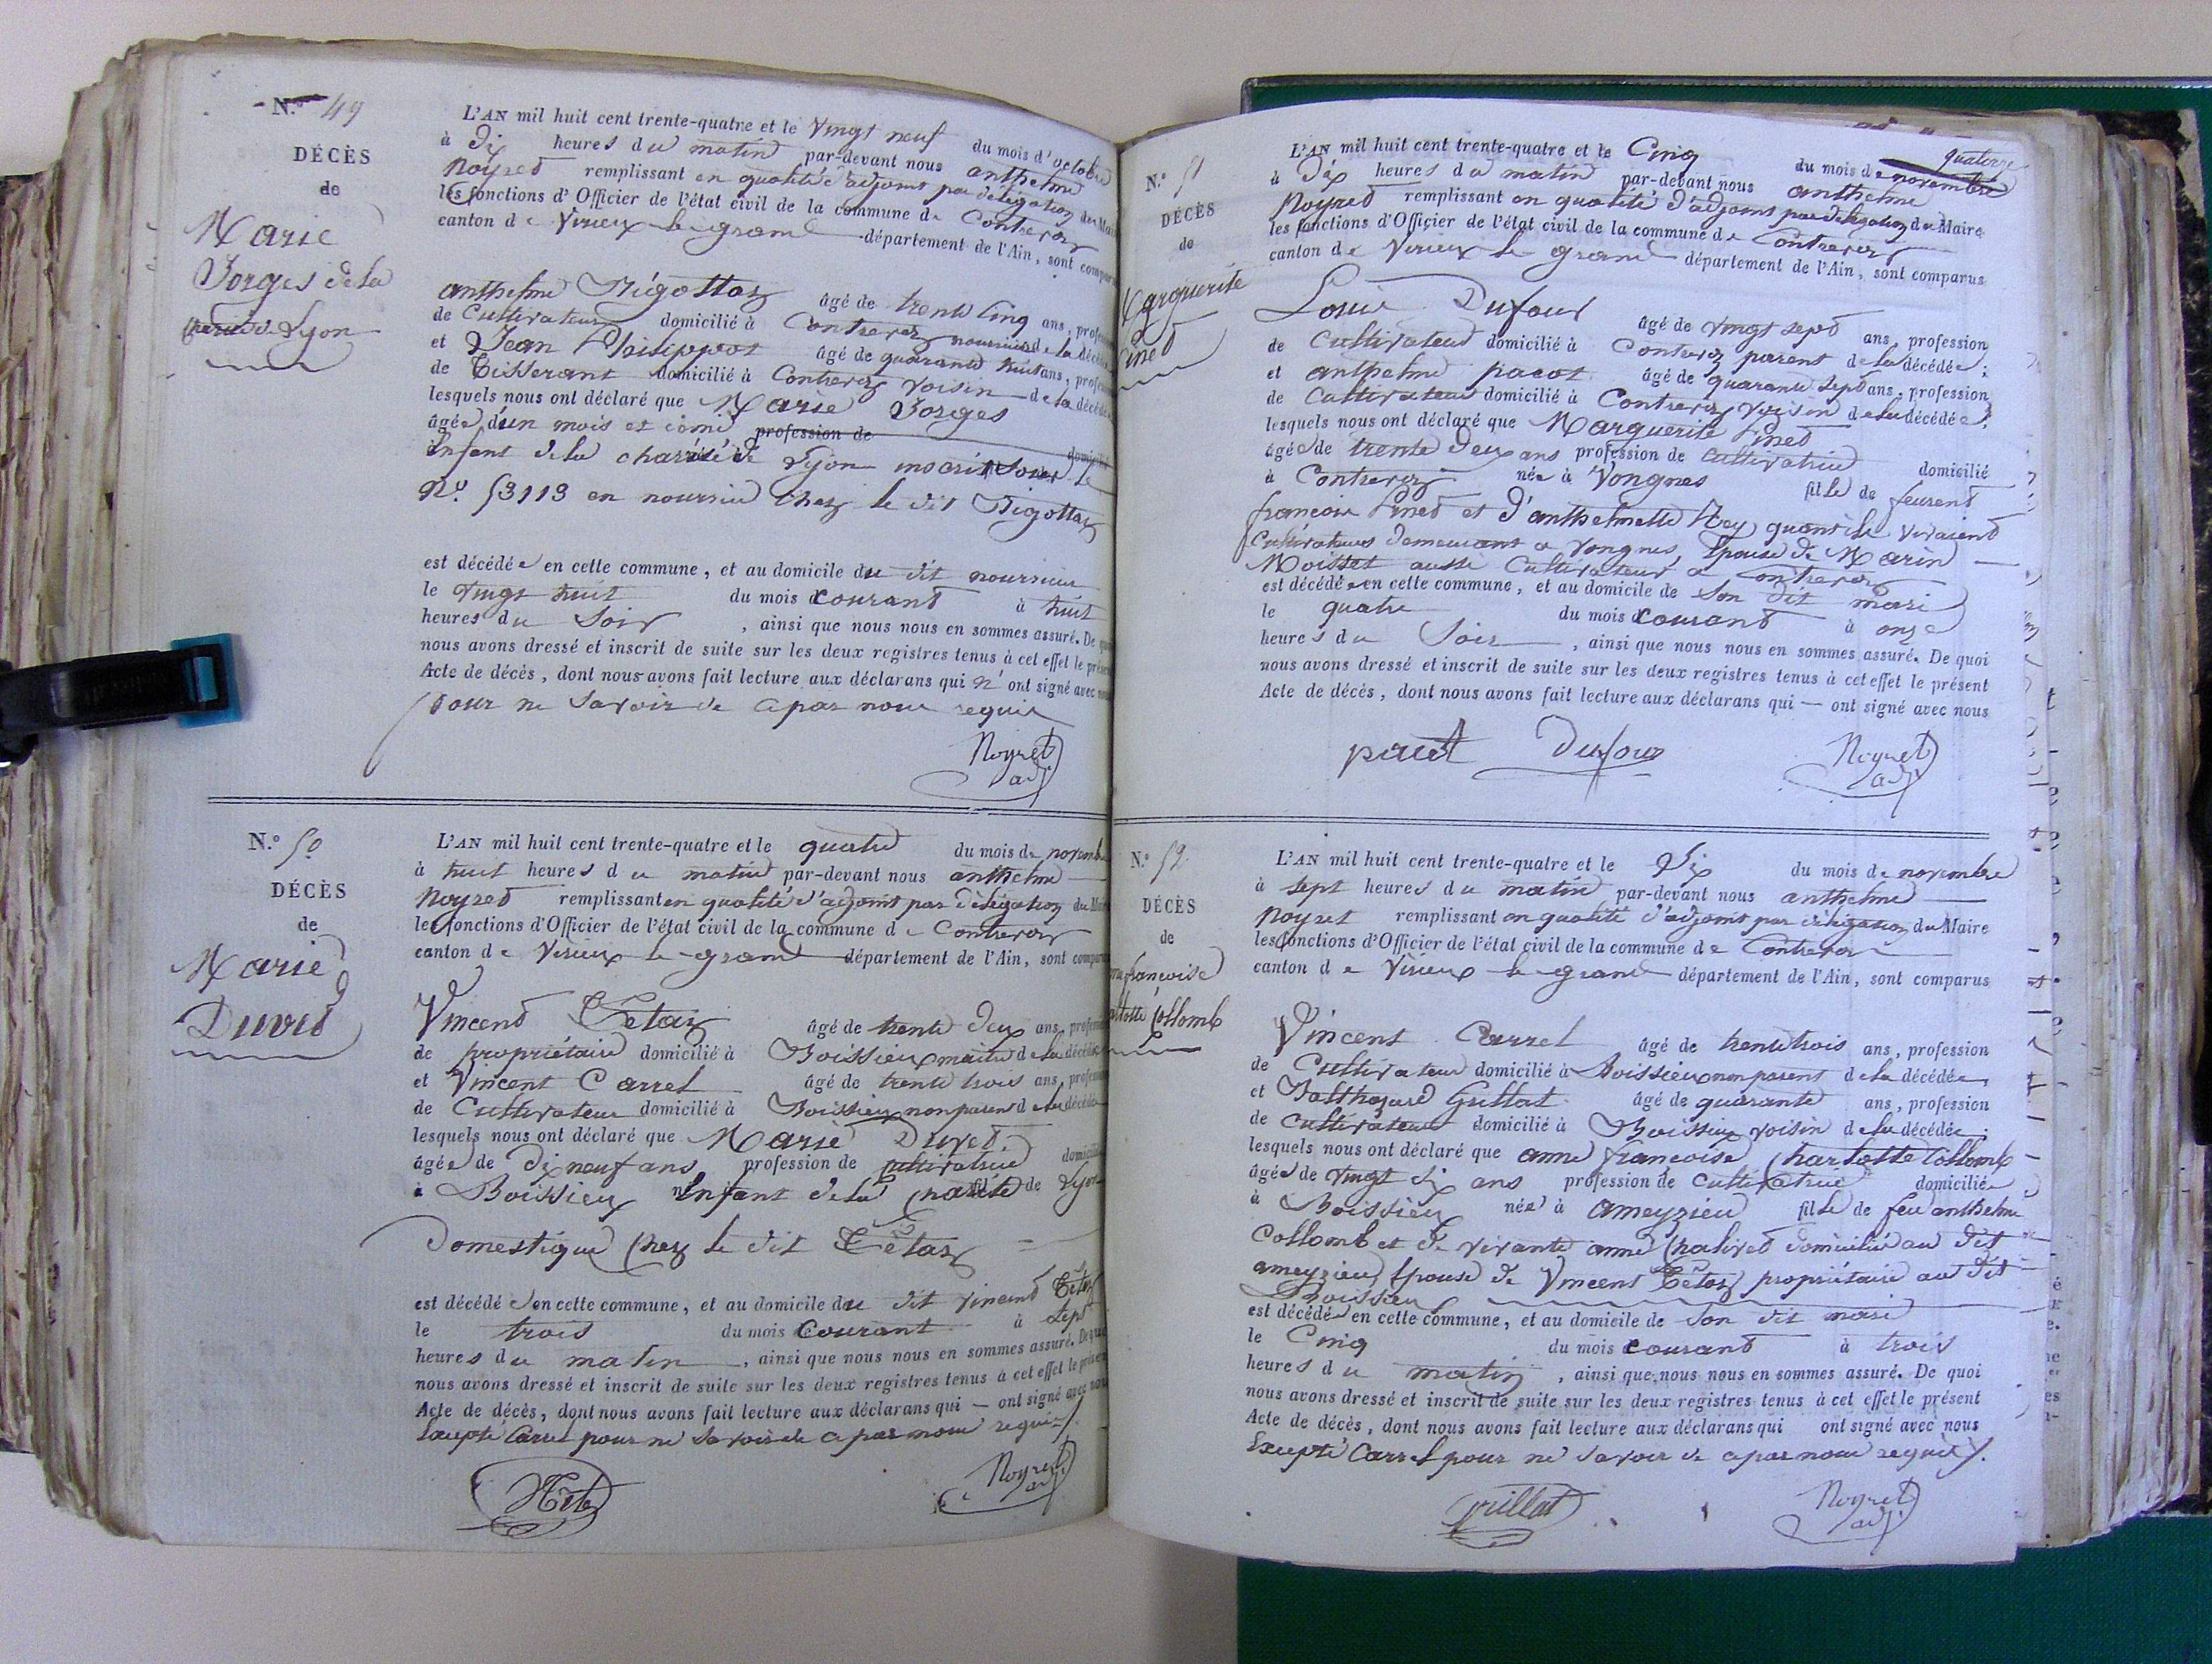 N.º 49
DÉCÈS
de
Marie
Vorges de la
charité de Lyon
L'AN mil huit cent trente-quatre et le Vingt neuf du mois d'octobre
à Dix heures du matin par-devant nous anthelme
Noyret remplissant en qualité d'adjoint par délégation du Maire
les fonctions d'Officier de l'état civil de la commune de Contrevoz
canton de Virieux le grand département de l'Ain, sont comparus
anthelme Trigottoz âgé de trente Cinq ans, profession
de Cultivateur domicilié à Contrevoz nourricier de la décédée
et Jean Philippoz âgé de quarante huit ans, profession
de Tisserant domicilié à Contrevoz Voisin de la décédée
lesquels nous ont déclaré que Marie Vorges
âgée d'un mois et demi profession de domicilié
Enfant de la charité de Lyon inscrit sous le
Nº. 53113 en nourrice Chez le dit Trigottoz
est décédée en cette commune, et au domicile du dit nourricier
le Vingt huit du mois courant à huit
heures du Soir, ainsi que nous nous en sommes assuré. De quoi
nous avons dressé et inscrit de suite sur les deux registres tenus à cet effet le présent
Acte de décès, dont nous avons fait lecture aux déclarans qui n'ont signé avec nous
pour ne Savoir de ce par nous requis
Noyret
adj.
N.º 50
DÉCÈS
de
Marie
Duvet
L'AN mil huit cent trente-quatre et le quatre du mois de novembre
à huit heures du matin par-devant nous anthelme
Noyret remplissant en qualité d'adjoint par délégation du Maire
les fonctions d'Officier de l'état civil de la commune de Contrevoz
canton de Virieux le grand département de l'Ain, sont comparus
Vincent Tétaz âgé de trente deux ans, profession
de propriétaire domicilié à Boissieux maitre de la décédée
et Vincent Carrel âgé de trente trois ans, profession
de Cultivateur domicilié à Boissieu non parent de la décédée
lesquels nous ont déclaré que Marie Duvet
âgée de Dix neuf ans profession de cultivatrice domicilié
à Boissieu Enfant de la Charité de Lyon
Domestique Chez le dit Tétaz
est décédée en cette commune, et au domicile du dit Vincent Tétaz
le trois du mois Courant à Sept
heures du matin, ainsi que nous nous en sommes assuré. De quoi
nous avons dressé et inscrit de suite sur les deux registres tenus à cet effet le présent
Acte de décès, dont nous avons fait lecture aux déclarans qui — ont signé avec nous
Excepté Carrel pour ne Savoir de ce par nous requis
Noyret
adj.
N.º 51
DÉCÈS
de
Marguerite
Pinet
L'AN mil huit cent trente-quatre et le Cinq du mois de novembre
à Dix heures du matin par-devant nous anthelme
Noyret remplissant en qualité d'adjoint par délégation du Maire
les fonctions d'Officier de l'état civil de la commune de Contrevoz
canton de Virieux le grand département de l'Ain, sont comparus
Louis Dufour âgé de Vingt sept ans, profession
de Cultivateur domicilié à Contrevoz parent de la décédée;
et anthelme pacot âgé de quarante sept ans, profession
de Cultivateur domicilié à Contrevoz Voisin de la décédée;
lesquels nous ont déclaré que Marguerite Pinet
âgée de trente Deux ans profession de cultivatrice domicilié
à Contrevoz née à Vongnes fille de feurent
francoise Pinet et D'anthelmette Rey quand ils vivaient
Cultivateurs demeurant a Vongnes, Epouse de Marin
Moisset aussi Cultivateur a Contrevoz
est décédée en cette commune, et au domicile de Son dit mari
le quatre du mois courant à onze
heures du Soir, ainsi que nous nous en sommes assuré. De quoi
nous avons dressé et inscrit de suite sur les deux registres tenus à cet effet le présent
Acte de décès, dont nous avons fait lecture aux déclarans qui — ont signé avec nous
pacot Dufour Noyret
adj.
N.º 52
DÉCÈS
de
françoise
Collomb
L'AN mil huit cent trente-quatre et le Six du mois de novembre
à Sept heures du matin par-devant nous anthelme
Noyret remplissant en qualité d'adjoint par délégation du Maire
les fonctions d'Officier de l'état civil de la commune de Contrevoz
canton de Virieux le grand département de l'Ain, sont comparus
Vincent Carrel âgé de trente trois ans, profession
de Cultivateur domicilié à Boissieu non parent de la décédée
et Balthazard Grillat âgé de quarante ans, profession
de cultivateur domicilié à Boissieu voisin de la décédée;
lesquels nous ont déclaré que anne françoise Charlotte Collomb
âgée de Vingt Six ans profession de Cultivatrice domiciliée
à Boissieu née à ameyzieu fille de feu anthelme
Collomb et de vivante anne Chalivet domicilié au dit
ameyzieu, Epouse de Vincent Tétaz propriétaire au dit
Boissieu
est décédée en cette commune, et au domicile de Son dit mari
le Cinq du mois courant à trois
heures du matin, ainsi que nous nous en sommes assuré. De quoi
nous avons dressé et inscrit de suite sur les deux registres tenus à cet effet le présent
Acte de décès, dont nous avons fait lecture aux déclarans qui ont signé avec nous
Excepté Carrel pour ne Savoir de ce par nous requis
grillat Noyret
adj.